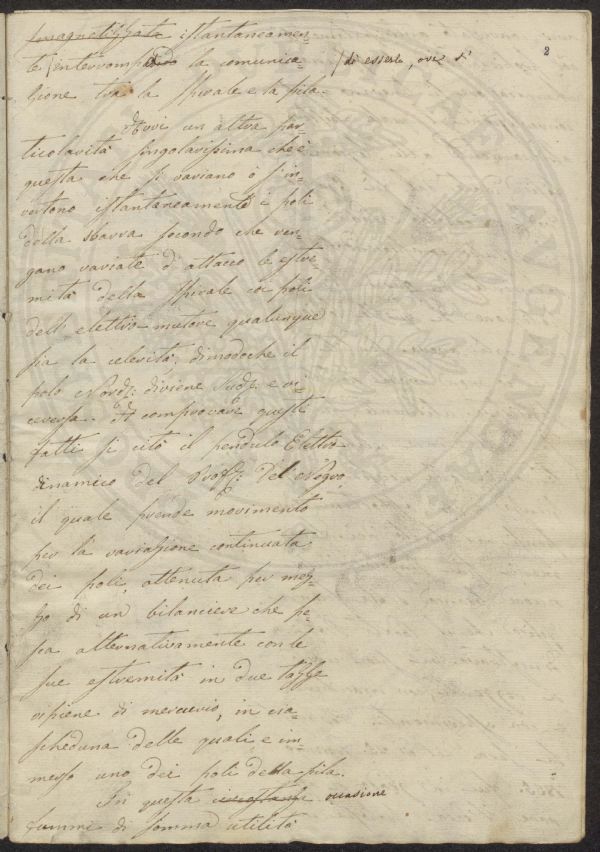 2
smagnetizzata istantaneamen-
te interrompendo la comunica- / di essere, ove s'
zione tra la spirale e la pila.
Avvi un altra par-
ticolarità singolarissima che è
questa che si variano o s'in-
vertono istantaneamente i poli
della sbarra secondo che ven-
gano variate di attacco le estre-
mità della spirale coi poli
dell' elettro-motore qualunque
sia la celerità; dimodoche il
polo Nord diviene Sud, e vi-
ceversa. A comprovare questi
fatti si citò il pendulo Elettro
dinamico del Prof. Del Negro,
il quale prende movimento
per la variazione continuata
dei poli, ottenuta per mez-
zo di un bilanciere che pe-
sca alternativamente con le
sue estremità in due tazze
ripiene di mercurio, in cia-
scheduna delle quali è im
merso uno dei poli della pila.
In questa circostanza occasione
fummi di somma utilità